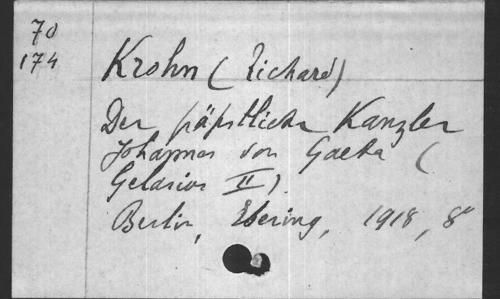 70
174
Krohn (Richard)
Der päpstliche Kanzler
Johannes von Gaeta (
Gelasius II).
Berlin, Ebering, 1918, 8°